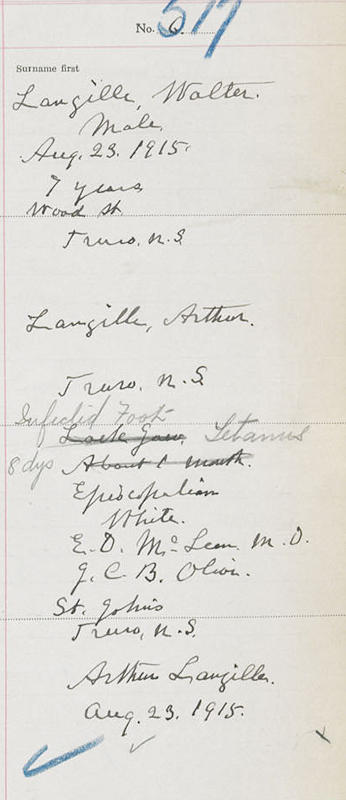 517
No. 6.
Surname first
Langille, Walter.
Male.
Aug. 23. 1915.
7 years
Wood St
Truro, N.S.
Langille, Arthur.
Truro, N.S.
Infected Foot
Lock Jaw. Tetanus
8 dys About 1 month.
Episcopalian
White.
E. D. McLean M.D.
J. C. B. Olive.
St. Johns
Truro, N.S.
Arthur Langille.
Aug. 23. 1915.